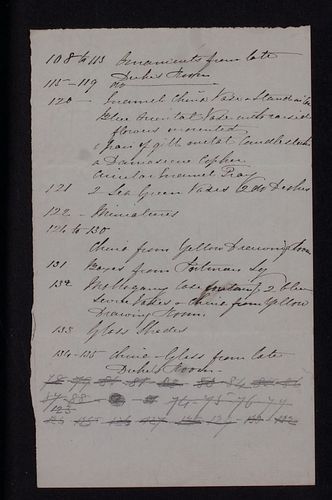 108 to 113 Ornaments from late
Duke's Room
115-119 do
120 - Enamel China Vase & Stand
Blue Oriental Vase with raised
flowers mounted
a pair of gilt metal Candlesticks
a Damascene
Circular Enamel Tray
121 2 Sea Green Vases & 2 do Dishes
122 - Miniatures
126 to 130
China from Yellow Drawing Room
131 from Portman Sq
132 Mahogany Case containg 2 blue
Sevres Vases & China from Yellow
Drawing Room
133 Glass Shades
134-135 China & Glass from late
Duke's Room
78 79 81 83 84
87 88 74-75-76-77
123
125 126 127